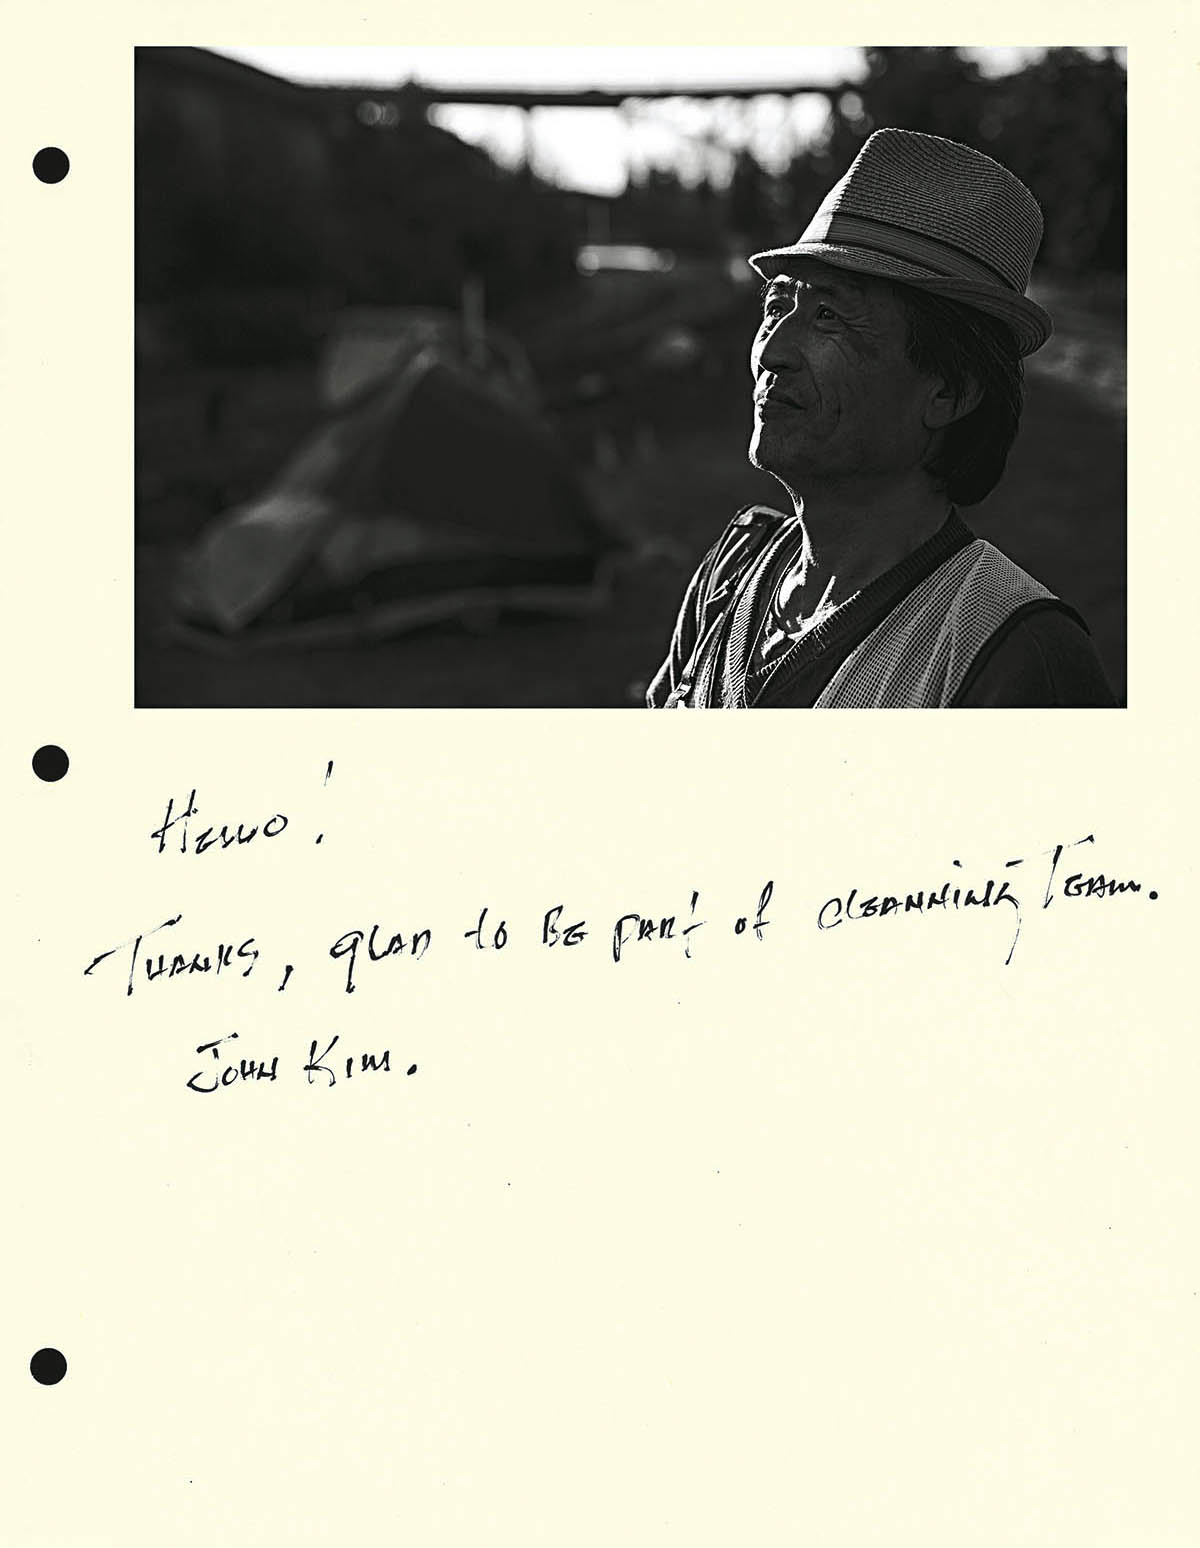 Hello!
Thanks, glad to Be part of cleanning Team.
John Kim.